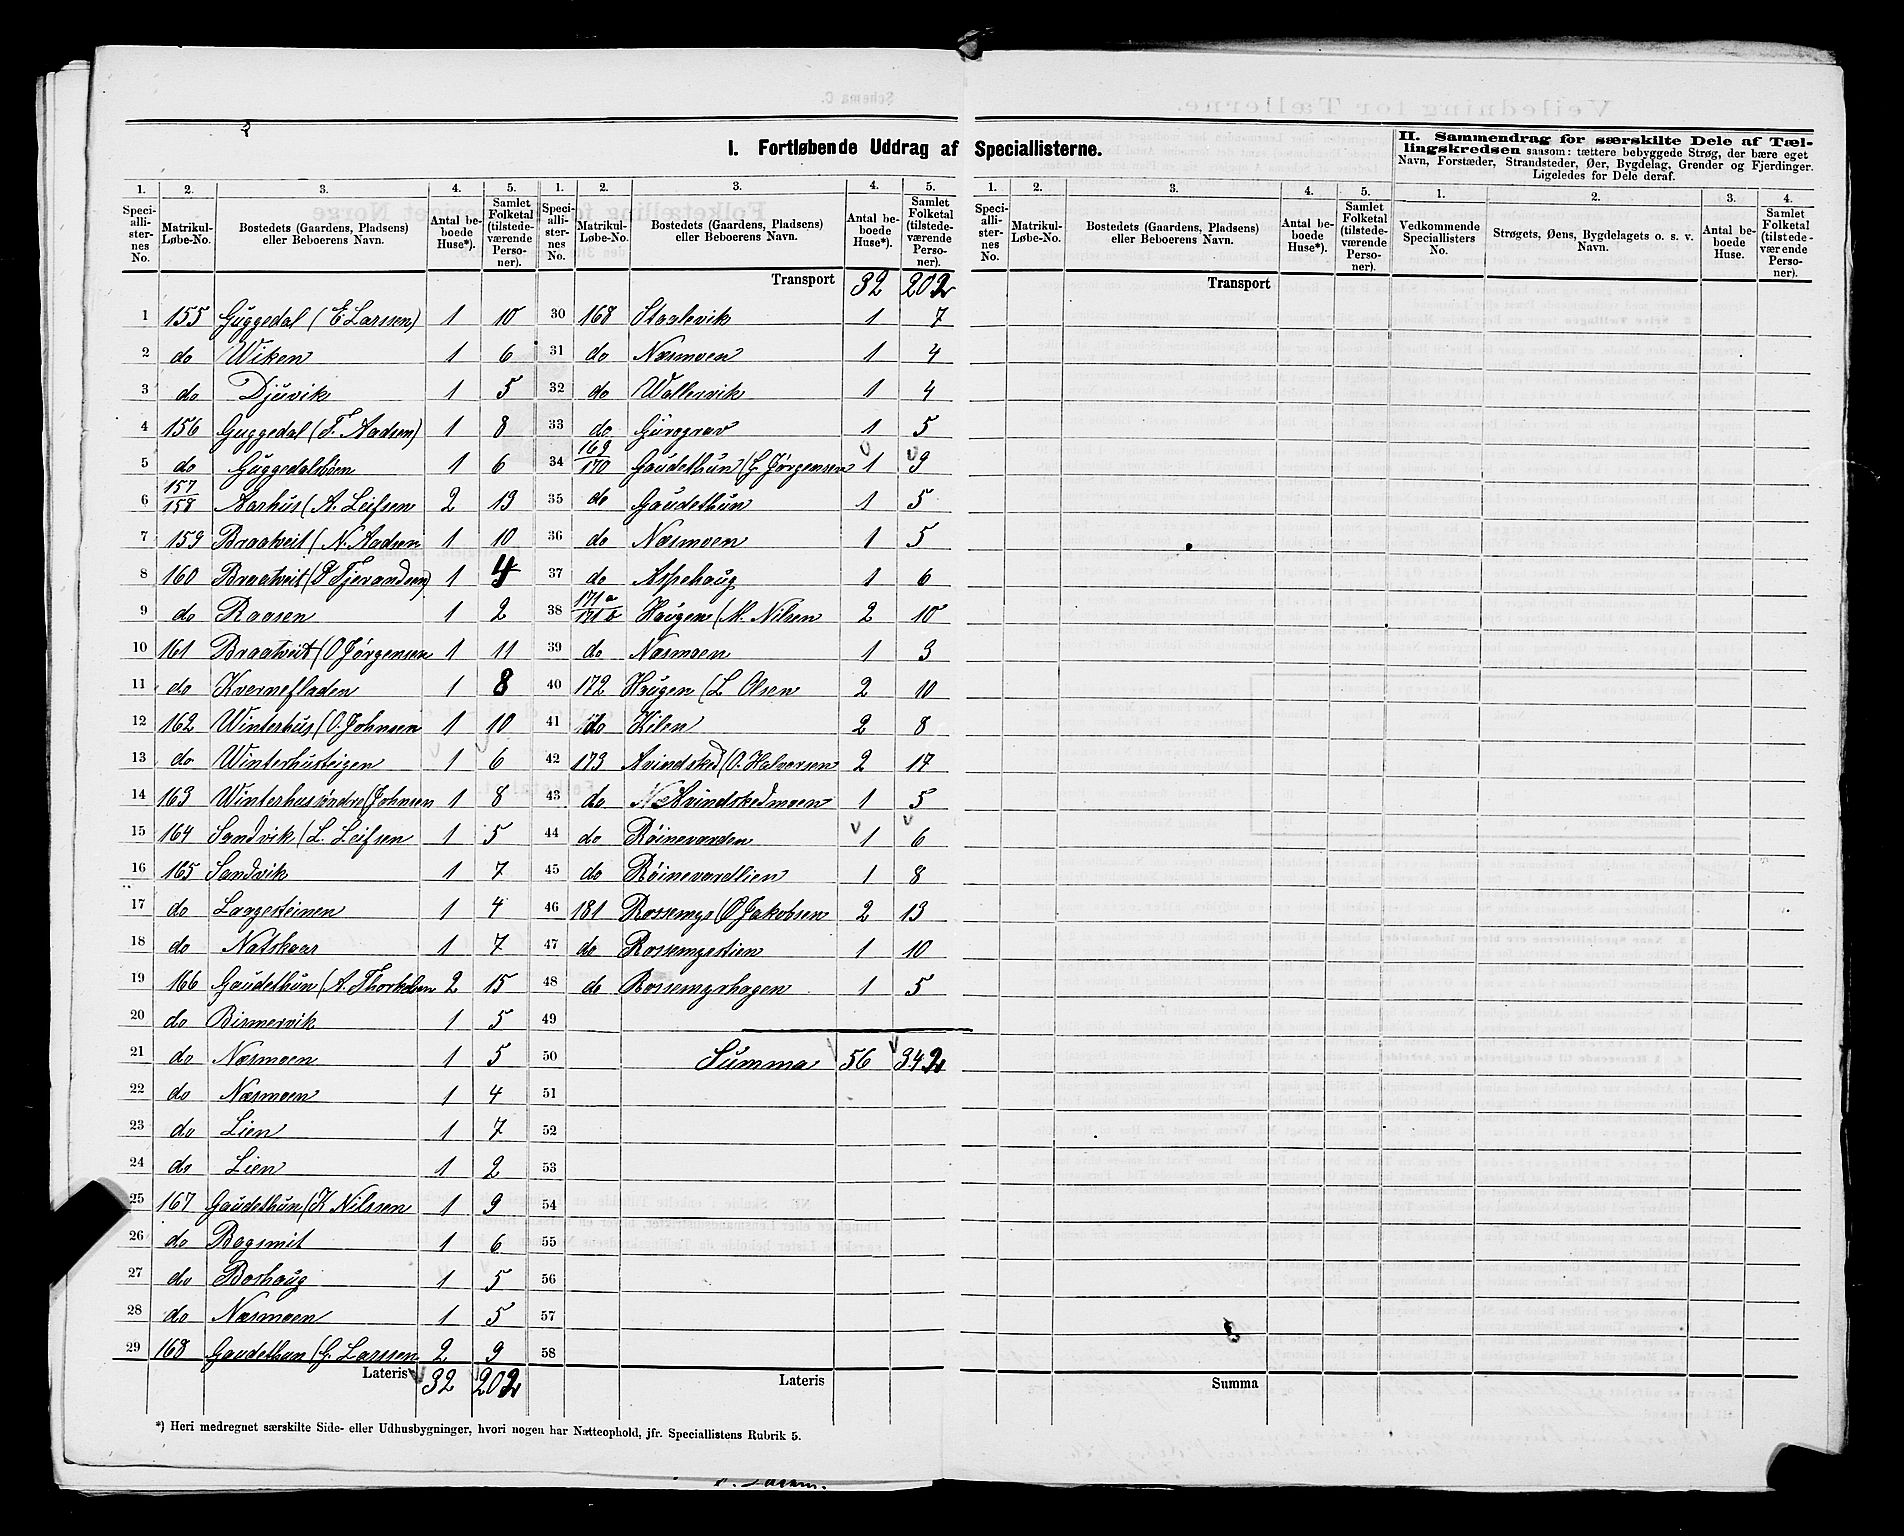 I. Fortløbende Uddrag af Speciallisterne.
II. Sammendrag for særskilte Dele af Tæl-
lingskredsen saasom: tættere bebyggede Strøg, der bære eget
Navn, Forstæder, Strandsteder, Øer, Bygdelag, Grender og Fjerdinger.
Ligeledes for Dele deraf.
1. 2. 3. 4. 5. 1. 2. 3. 4. 5. 1. 2. 3. 4. 5. 1. 2. 3. 4.
Speciallisternes No. Matrikul-Løbe-No. Bostedets (Gaardens, Pladsens) eller Beboerens Navn. Antal beboede Huse*). Samlet Folketal (tilstedeværende Personer).
Speciallisternes No. Matrikul-Løbe-No. Bostedets (Gaardens, Pladsens) eller Beboerens Navn. Antal beboede Huse*). Samlet Folketal (tilstedeværende Personer).
Speciallisternes No. Matrikul-Løbe-No. Bostedets (Gaardens, Pladsens) eller Beboerens Navn. Antal beboede Huse*). Samlet Folketal (tilstedeværende Personer).
Vedkommende Speciallisters No. Strøgets, Øens, Bygdelagets o. s. v. Navn. Antal beboede Huse. Samlet Folketal (tilstedeværende Personer).
1 155 Guggedal (E. Larssen) 1 10
2 do Wiken 1 6
3 do Djuvik 1 5
4 156 Guggedal (T. Aadsen) 1 8
5 do Guggedalsbøen 1 6
6 157/158 Aarhus (A. Leifsen 2 13
7 159 Braatveit (N. Aadsen 1 10
8 160 Braatveit (P Tjerandsen) 1 4
9 do Raasen 1 2
10 161 Braatveit (O Jørgensen 1 11
11 do Kvernefladen 1 8
12 162 Winterhus (O. Johnsen 1 10
13 do Winterhusteigen 1 6
14 163 Winterhus søndre (Johnsen 1 8
15 164 Sandvik (L. Leifsen 1 5
16 165 Sandvik 1 7
17 do Laagesteinen 1 4
18 do Natskaar 1 7
19 166 Gaudethun (A. Thorkelsen 2 15
20 do Bismervik 1 5
21 do Næsmoen 1 5
22 do Næsmoen 1 4
23 do Lien 1 7
24 do Lien 1 2
25 167 Gaudethun (K Nilssen 1 9
26 do Bogsmit 1 6
27 do Boshaug 1 5
28 do Næsmoen 1 5
29 168 Gaudethun (G. Larssen 2 9
Lateris 32 202
Transport 32 202
30 168 Staalevik 1 7
31 do Næsmoen 1 4
32 do Wallervik 1 4
33 do Gurograv 1 5
34 169/170 Gaudethun (G. Jørgensen 1 9
35 do Gaudethun 1 5
36 do Næsmoen 1 5
37 do Aspehaug 1 6
38 171a/171b Haugen (M. Nilsen 2 10
39 do Næsmoen 1 3
40 172 Haugen (L Olsen 2 10
41 do Kilen 2 8
42 173 Avindsked (O. Halvorsen 2 17
43 do Avindskedmoen 1 5
44 do Røinevarden 1 6
45 do Røinevardlien 1 8
46 181 Rossemyr (P Jakobsen 2 13
47 do Rossemyrstien 1 10
48 do Rossemyrhagen 1 5
49
50 Summa 56 342
51
52
53
54
55
56
57
58
Lateris
Transport
Summa
*) Heri medregnet særskilte Side- eller Udhusbygninger, hvori nogen har Natteophold, jfr. Speciallistens Rubrik 5.